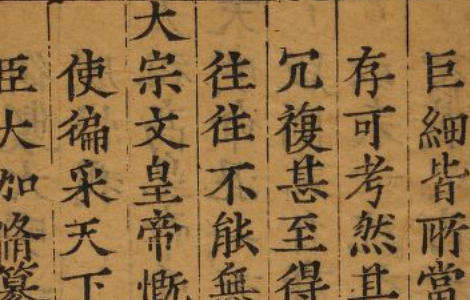 巨細皆所當
存可考然其
冗複甚至得
往往不能無
大宗文皇帝慨
使徧采天下
臣大加脩纂